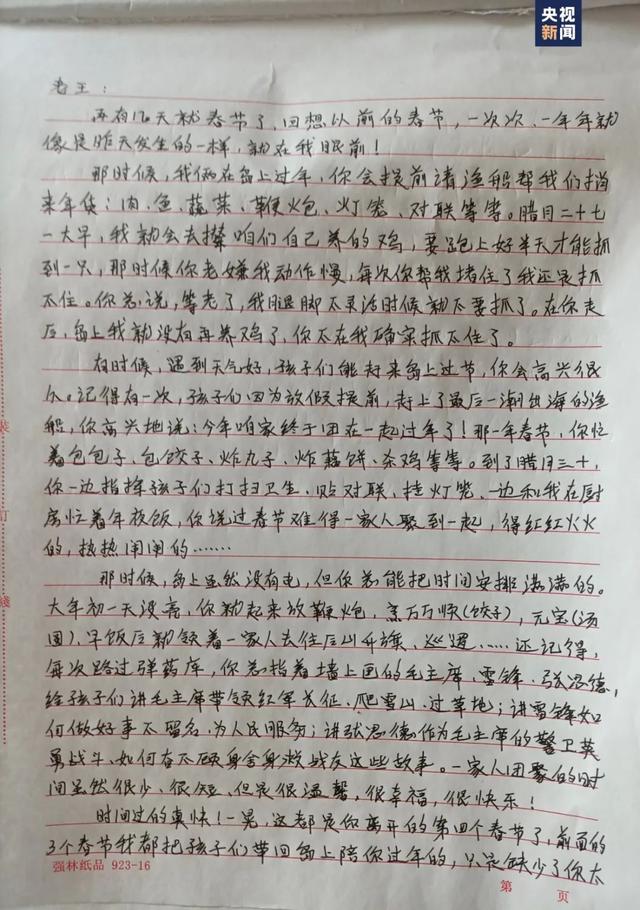 央视
新闻
老王：
再有几天就春节了，回想以前的春节，一次次、一年年就
像是昨天发生的一样，就在我眼前！
那时候，我俩在岛上过年，你会提前请渔船帮我们捎
来年货：肉、鱼、蔬菜、鞭炮、灯笼、对联等等。腊月二十七
一大早，我就会去撵咱们自己养的鸡，要跑上好半天才能抓
到一只，那时候你老嫌我动作慢，每次你帮我堵住了我还是抓
不住。你总说，等老了，我腿脚不灵活时候就不要抓了。在你走
后，岛上我就没有再养鸡了，你不在我确实抓不住了。
有时候，遇到天气好，孩子们能赶来岛上过节，你会高兴很
久。记得有一次，孩子们因为放假提前，赶上了最后一潮出海的渔
船，你高兴地说：今年咱家终于团在一起过年了！那一年春节，你忙
着包包子、包饺子、炸丸子、炸藕饼、杀鸡等等。到了腊月三十，
你一边指挥孩子们打扫卫生、贴对联、挂灯笼、一边和我在厨
房忙着年夜饭，你说过春节难得一家人聚到一起，得红红火火
的，热热闹闹的……
那时候，岛上虽然没有电，但你总能把时间安排满满的。
大年初一天没亮，你就起来放鞭炮，煮万万顺(饺子)，元宝(汤
圆)，早饭后就领着一家人去往后山升旗、巡逻……还记得，
每次路过弹药库，你总指着墙上画的毛主席、雷锋、张思德，
给孩子们讲毛主席带领红军长征、爬雪山、过草地；讲雷锋如
何做好事不留名、为人民服务；讲张思德作为毛主席的警卫英
勇战斗、如何奋不顾身舍身救战友这些故事。一家人团聚的时
间虽然很少、很短、但是很温馨，很幸福，很快乐！
时间过的真快！一晃，这都是你离开的第四个春节了，前面的
3个春节我都把孩子们带回岛上陪你过年的，只是缺少了你太
强林纸品 923-16
第 页
装
订
线